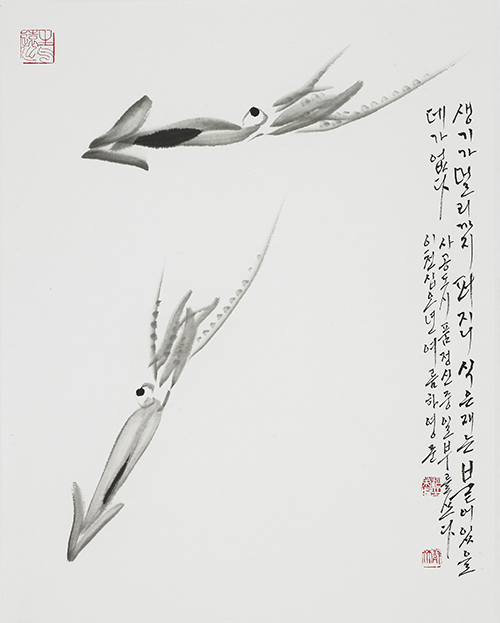 생기가 멀리까지 퍼지니 식은재는 붙어있을
데가 없다
사공도 시품 정신 중 일부를 쓰다
이천십오년 여름 하영준